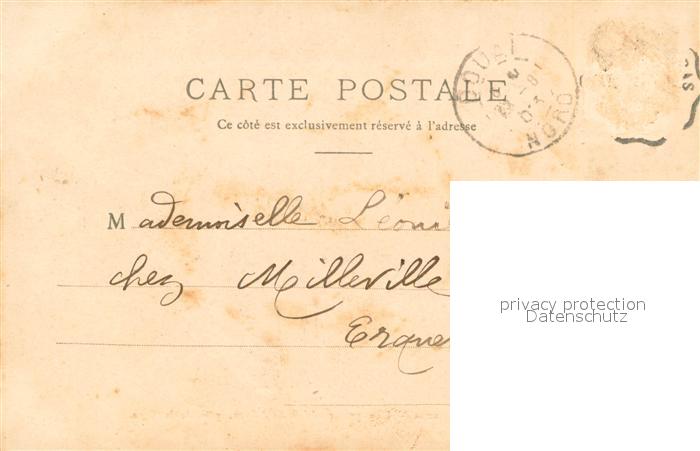 CARTE POSTALE
Ce côté est exclusivement réservé à l'adresse
NORD
Mademoiselle
chez Milleville
privacy protection
Datenschutz